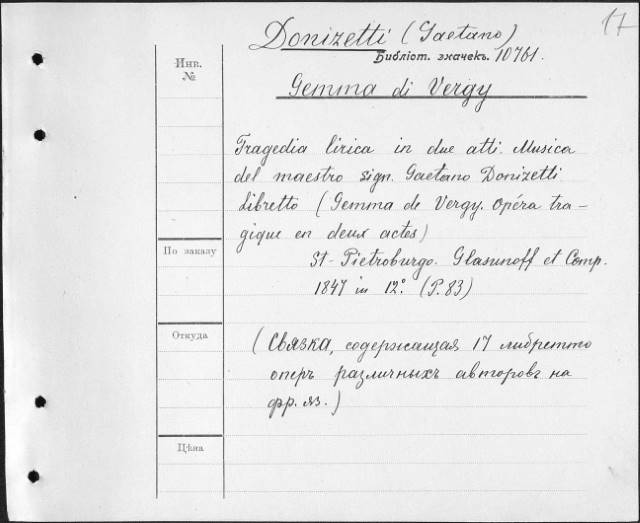 17
Donizetti (Gaetano)
Библіот. значекъ. 10761.
Gemma di Vergy
Инв.
№
Tragedia lirica in due atti. Musica
del maestro sign. Gaetano Donizetti
Libretto (Gemma de Vergy. Opéra tra-
gique en deux actes)
St-Pietroburgo. Glasunoff et Comp.
1847 in 12°. (P. 83)
По заказу
Откуда
(Связка, содержащая 17 либретто
оперъ различныхъ авторовъ на
фр. яз.)
Цѣна